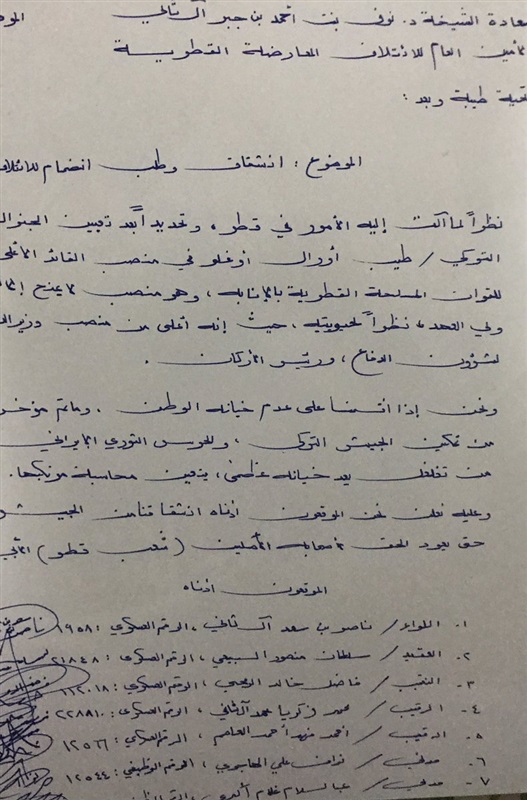 سعادة الشيخة د. نوف بنت احمد بن جبر آل ثاني
الأمين العام للائتلاف المعارضة القطرية
تحية طيبة وبعد :
الموضوع : انشقاق وطلب انضمام للائتلاف
نظراً لما آلت إليه الأمور في قطر، وتحديداً بعد تعيين الجنرال
التركي / طيب أورال أوغلو في منصب القائد الأعلى
للقوات المسلحة القطرية بالإنابه، وهو منصب لا يمنح إلا
ولي العهد، نظراً لحيويته، حيث إنه أعلى من منصب وزير
لشؤون الدفاع، ورئيس الأركان.
ونحن إذا أقسمنا على عدم خيانة الوطن. وماتم مؤخراً
من تمكين الجيش التركي، والحرس الثوري الإيراني
من تغلغل يعد خيانه عظمى، يتعين محاسبة مرتكبها.
وعليه نعلن نحن الموقعون أدناه انشقاقنا من الجيش
حتى يعود الحق لأصحابه الأصليين (شعب قطر)
الموقعون ادناه
١. اللواء/ ناصر بن سعد آل ثاني، الرقم العسكري: ١٩٥٨
٢. العقيد/ سلطان منصور السبيعي، الرقم العسكري: ٢١٨٤٨
٣. النقيب/ فاضل خالد، الرقم العسكري: ١١٢٠١٨
٤. الرقيب/ محمد زكريا حمد آل ثاني، الرقم العسكري: ٢٢٨٨١٠
٥. الرقيب/ احمد فهد أحمد، الرقم العسكري: ١٢٥٦٦
٦. مدني/ نواف علي، الرقم الوظيفي: ١٢٥٤٤
٧. مدني/ عبدالسلام غلام